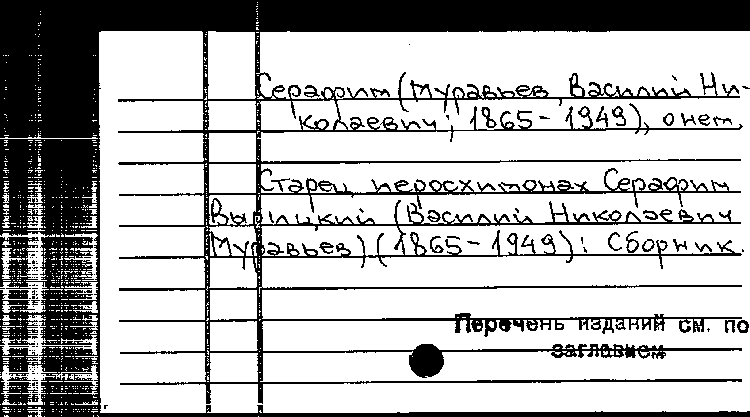 Серафим (Муравьев, Василий Ни-
колаевич; 1865-1949), о нем.
Старец иеросхимонах Серафим
Вырицкий (Василий Николаевич
Муравьев) (1865-1949): Сборник.
Перечень изданий см. по
заглавием